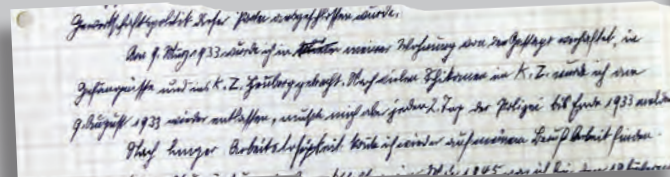 Gewerkschaftspolitik dieser Partei ausgeschlossen wurde.
Am 9. März 1933 wurde ich in meiner Wohnung von der Gestapo verhaftet, in
Gefängnisse und ins K.Z. Heuberg gebracht. Nach vielen Schikanen im K.Z. wurde ich am
9. August 1933 wieder entlassen, mußte mich aber jeden 2. Tag der Polizei bis Ende 1933 melden
Nach langer Arbeitslosigkeit konnte ich wieder auf meinem Beruf Arbeit finden
1945